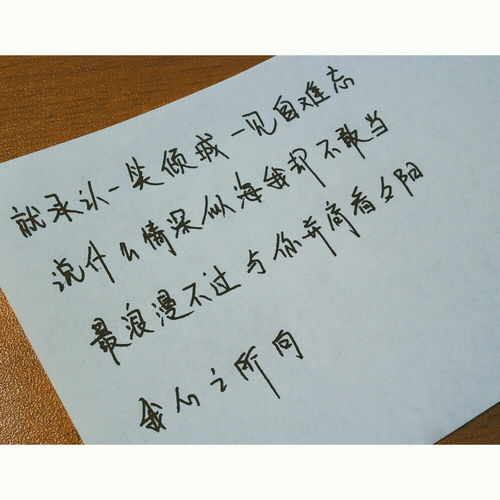 就承认一笑倾城一见自难忘
说什么情深似海我却不敢当
最浪漫不过与你并肩看夕阳
我心之所向